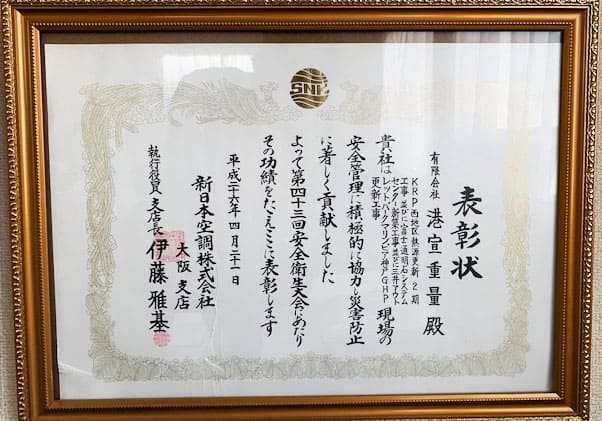 SNK
表彰状
有限会社 港宣重量 殿
KRP西地区熱源更新2期
工事並びに富士通明石システム
センター新築工事並びに三井アウト
レットパークマリンピア神戸GHP
更新工事
貴社は 現場の
安全管理に積極的に協力し災害防止
に著しく貢献しました
よって第四十三回安全衛生大会にあたり
その功績をたたえここに表彰します
平成二十六年四月二十一日
新日本空調株式会社
大阪支店
執行役員支店長 伊藤雅基